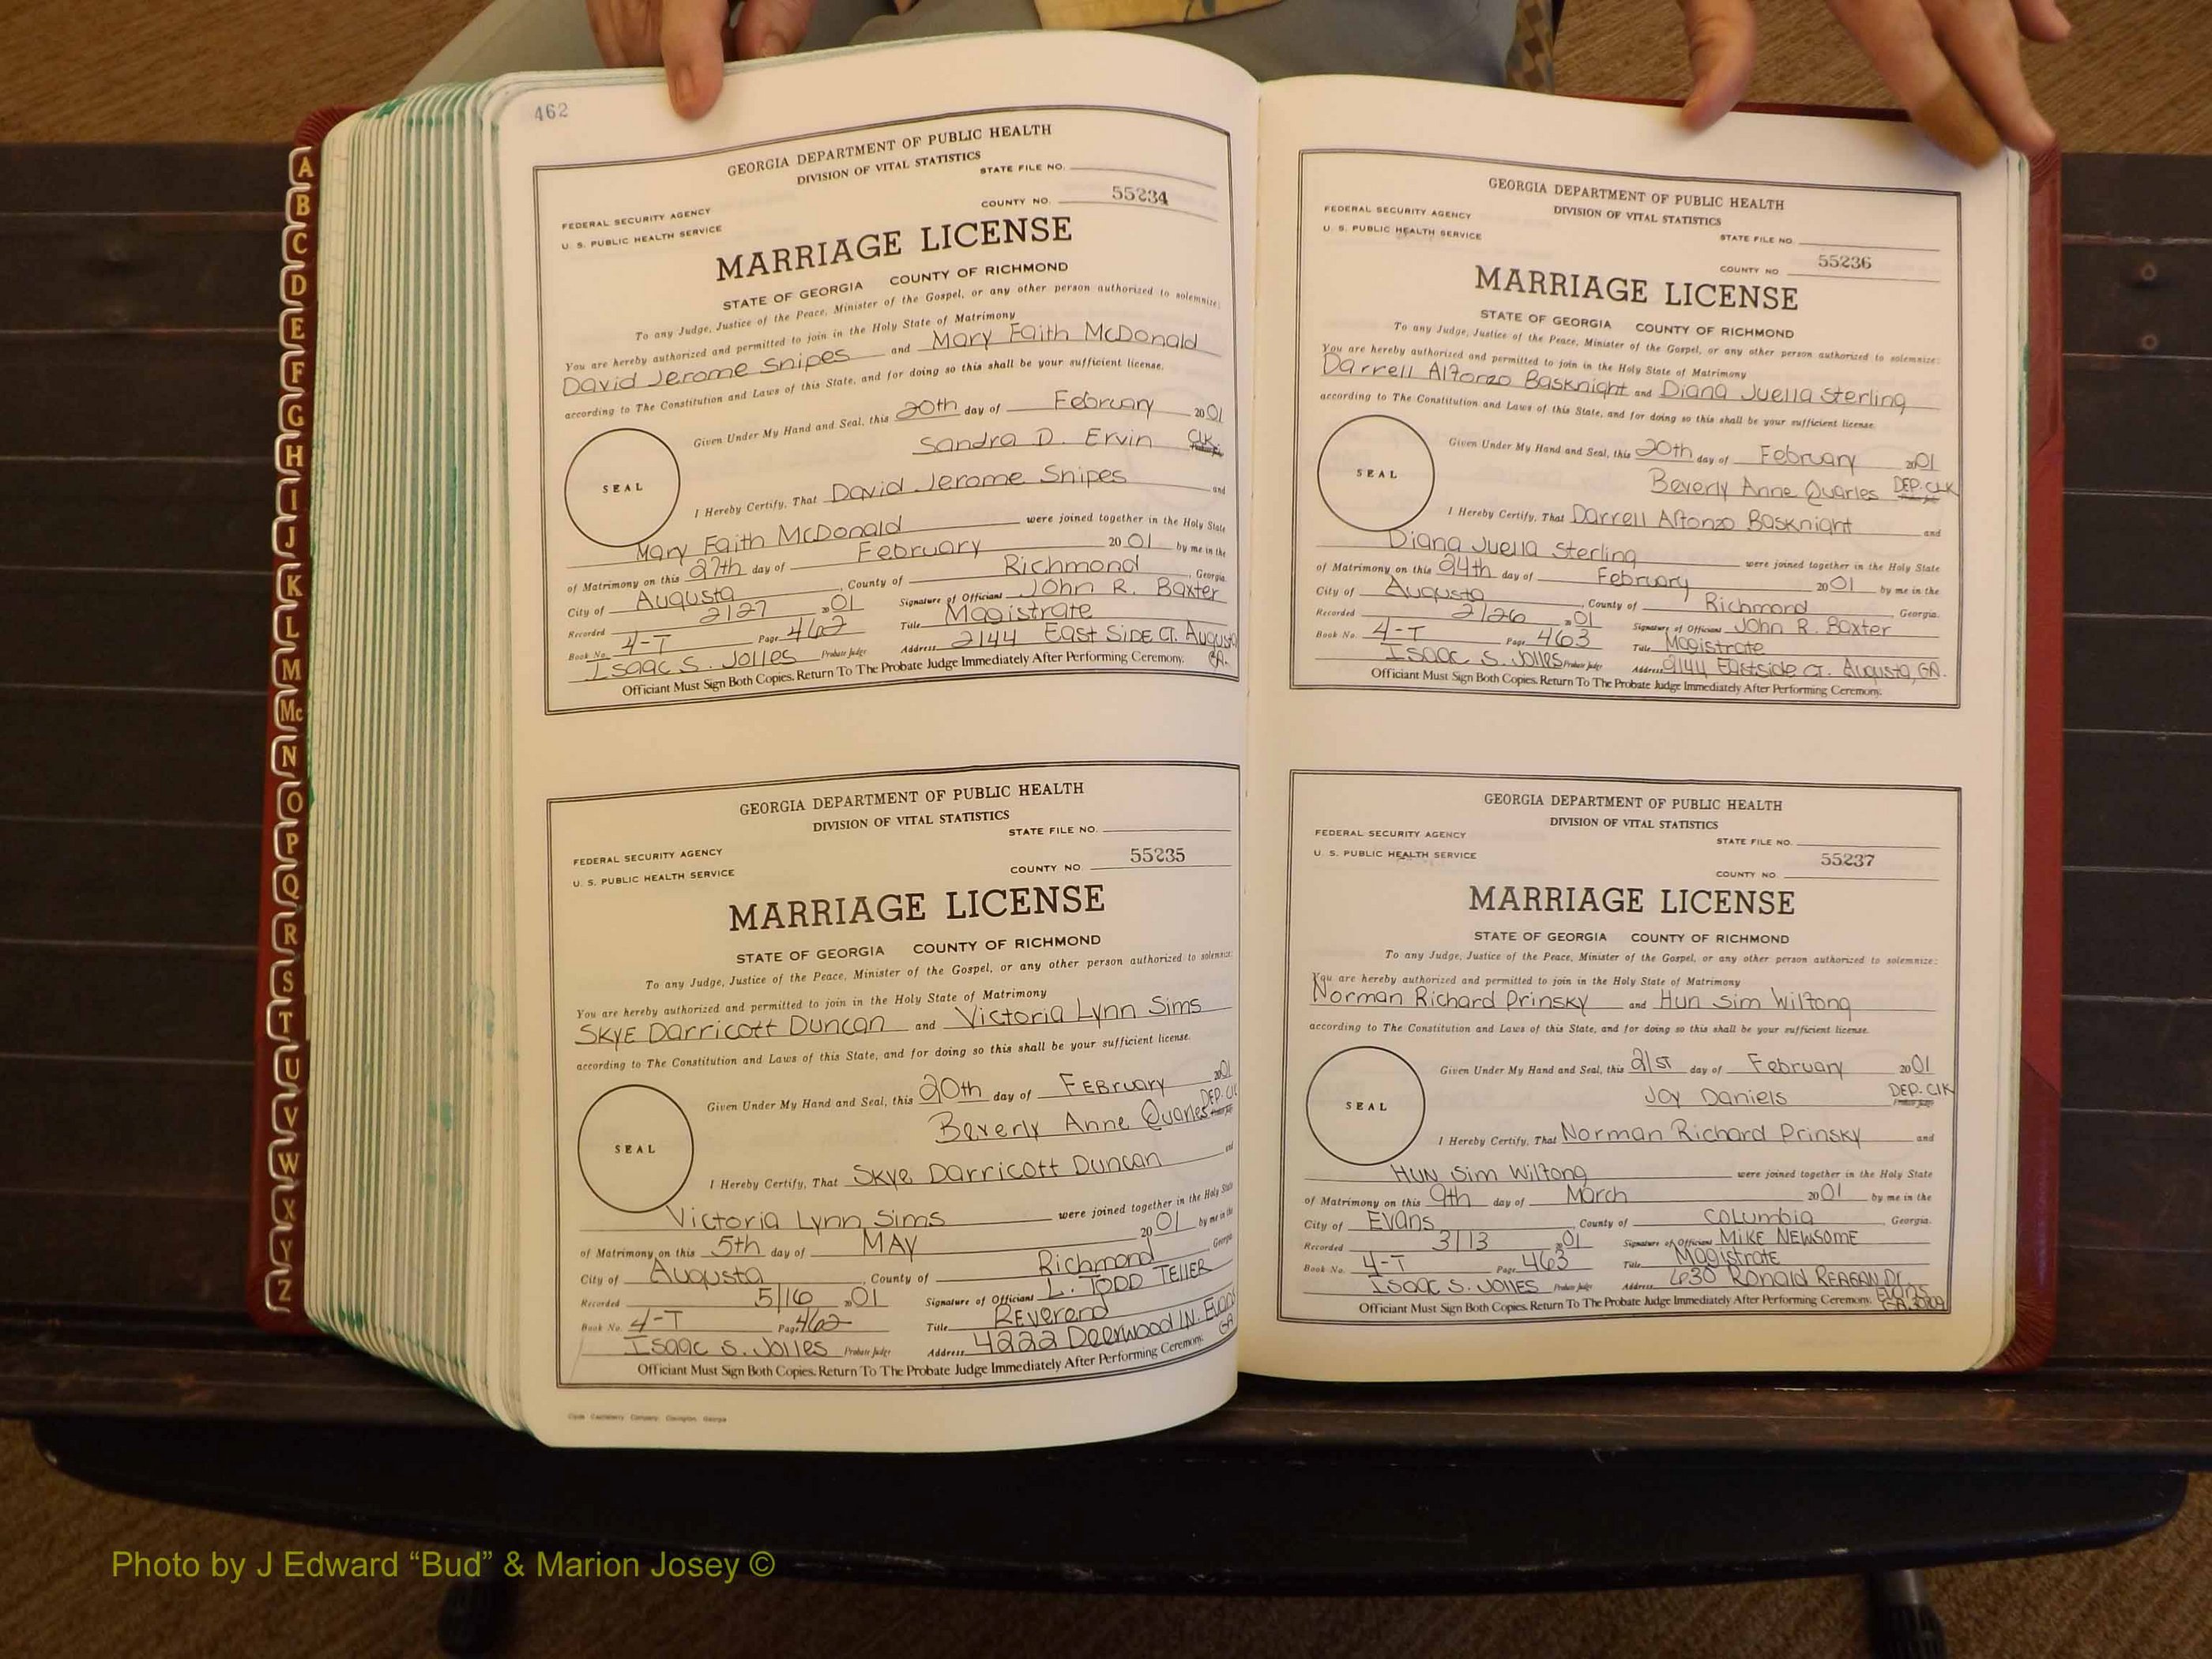 462
GEORGIA DEPARTMENT OF PUBLIC HEALTH
DIVISION OF VITAL STATISTICS
STATE FILE NO.
FEDERAL SECURITY AGENCY
U. S. PUBLIC HEALTH SERVICE
COUNTY NO. 55234
MARRIAGE LICENSE
STATE OF GEORGIA COUNTY OF RICHMOND
To any Judge, Justice of the Peace, Minister of the Gospel, or any other person authorized to solemnize:
You are hereby authorized and permitted to join in the Holy State of Matrimony
David Jerome Snipes and Mary Faith McDonald
according to The Constitution and Laws of this State, and for doing so this shall be your sufficient license.
Given Under My Hand and Seal, this 20th day of February 2001
Sandra D. Ervin CLK.
SEAL
I Hereby Certify, That David Jerome Snipes and
Mary Faith McDonald were joined together in the Holy State
of Matrimony on this 27th day of February 2001 by me in the
City of Augusta, County of Richmond, Georgia.
Recorded 2/27 2001 Signature of Officiant John R. Baxter
Book No. 4-T Page 462 Title Magistrate
Isaac S. Jolles Probate Judge Address 2144 East Side CT. Augusta GA.
Officiant Must Sign Both Copies. Return To The Probate Judge Immediately After Performing Ceremony.
GEORGIA DEPARTMENT OF PUBLIC HEALTH
DIVISION OF VITAL STATISTICS
STATE FILE NO.
FEDERAL SECURITY AGENCY
U. S. PUBLIC HEALTH SERVICE
COUNTY NO. 55235
MARRIAGE LICENSE
STATE OF GEORGIA COUNTY OF RICHMOND
To any Judge, Justice of the Peace, Minister of the Gospel, or any other person authorized to solemnize:
You are hereby authorized and permitted to join in the Holy State of Matrimony
Skye Darricott Duncan and Victoria Lynn Sims
according to The Constitution and Laws of this State, and for doing so this shall be your sufficient license.
Given Under My Hand and Seal, this 20th day of February 2001
Beverly Anne Quarles DEP. CL
SEAL
I Hereby Certify, That Skye Darricott Duncan and
Victoria Lynn Sims were joined together in the Holy State
of Matrimony on this 5th day of MAY 2001 by me in the
City of Augusta, County of Richmond, Georgia
Recorded 5/16 2001 Signature of Officiant L. TODD TELLER
Book No. 4-T Page 462 Title Reverend
Isaac S. Jolles Probate Judge Address 4222 Deerwood LN. Evans GA
Officiant Must Sign Both Copies. Return To The Probate Judge Immediately After Performing Ceremony.
GEORGIA DEPARTMENT OF PUBLIC HEALTH
DIVISION OF VITAL STATISTICS
FEDERAL SECURITY AGENCY
U. S. PUBLIC HEALTH SERVICE
STATE FILE NO.
COUNTY NO. 55236
MARRIAGE LICENSE
STATE OF GEORGIA COUNTY OF RICHMOND
To any Judge, Justice of the Peace, Minister of the Gospel, or any other person authorized to solemnize:
You are hereby authorized and permitted to join in the Holy State of Matrimony
Darrell Alfonzo Basknight and Diana Juella Sterling
according to The Constitution and Laws of this State, and for doing so this shall be your sufficient license.
Given Under My Hand and Seal, this 20th day of February 2001
Beverly Anne Quarles DEP. CLK
SEAL
I Hereby Certify, That Darrell Alfonzo Basknight and
Diana Juella Sterling were joined together in the Holy State
of Matrimony on this 24th day of February 2001 by me in the
City of Augusta, County of Richmond Georgia.
Recorded 2/26 2001 Signature of Officiant John R. Baxter
Book No. 4-T Page 463 Title Magistrate
Isaac S. Jolles Probate Judge Address 2144 Eastside CT. Augusta, GA.
Officiant Must Sign Both Copies. Return To The Probate Judge Immediately After Performing Ceremony.
GEORGIA DEPARTMENT OF PUBLIC HEALTH
DIVISION OF VITAL STATISTICS
FEDERAL SECURITY AGENCY
U. S. PUBLIC HEALTH SERVICE
STATE FILE NO.
COUNTY NO. 55237
MARRIAGE LICENSE
STATE OF GEORGIA COUNTY OF RICHMOND
To any Judge, Justice of the Peace, Minister of the Gospel, or any other person authorized to solemnize:
You are hereby authorized and permitted to join in the Holy State of Matrimony
Norman Richard Prinsky and Hun Sim Wilfong
according to The Constitution and Laws of this State, and for doing so this shall be your sufficient license.
Given Under My Hand and Seal, this 21st day of February 2001
Joy Daniels DEP. CLK
SEAL
I Hereby Certify, That Norman Richard Prinsky and
Hun Sim Wilfong were joined together in the Holy State
of Matrimony on this 9th day of March 2001 by me in the
City of Evans, County of Columbia, Georgia.
Recorded 3/13 2001 Signature of Officiant MIKE NEWSOME
Book No. 4-T Page 463 Title Magistrate
Isaac S. Jolles Probate Judge Address 630 Ronald REAGAN Dr. Evans GA. 30809
Officiant Must Sign Both Copies. Return To The Probate Judge Immediately After Performing Ceremony.
A
B
C
D
E
F
G
H
I
J
K
L
M
Mc
N
O
P
Q
R
S
T
U
V
W
X
Y
Z
Photo by J Edward “Bud” & Marion Josey ©